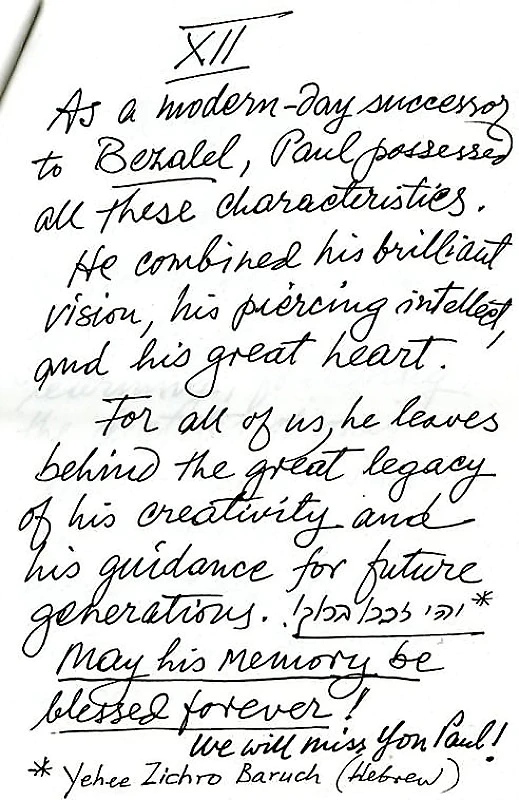 XII
As a modern-day successor
to Bezalel, Paul possessed
all these characteristics.
He combined his brilliant
vision, his piercing intellect,
and his great heart.
For all of us, he leaves
behind the great legacy
of his creativity and
his guidance for future
generations. יהי זכרו ברוך!*
May his memory be
blessed forever!
We will miss you Paul!
* Yehee Zichro Baruch (Hebrew)